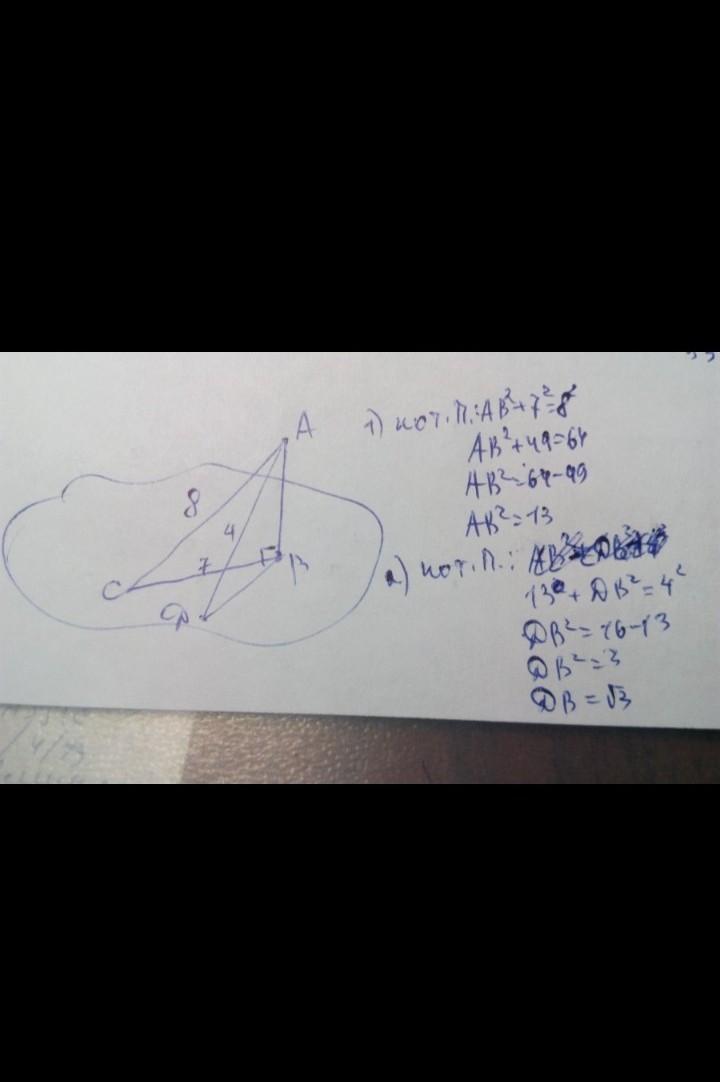 A
8
4
7
C
B
D
1) по т.П.: AB²+7²=8²
AB²+49=64
AB²=64-49
AB²=13
2) по т.П.:
13+DB²=4²
DB²=16-13
DB²=3
DB=√3